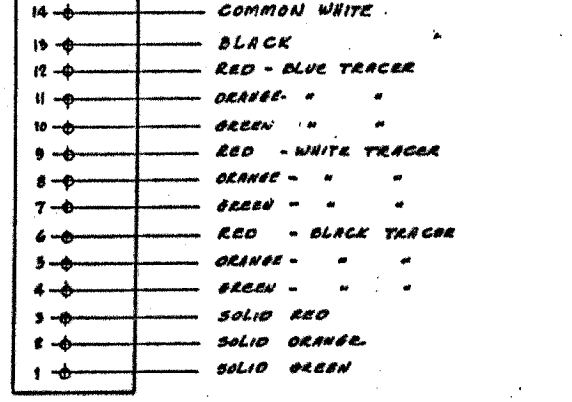 14 COMMON WHITE.
13 BLACK
12 RED - BLUE TRACER
11 ORANGE- " "
10 GREEN " "
9 RED - WHITE TRACER
8 ORANGE - " "
7 GREEN - " "
6 RED - BLACK TRACER
5 ORANGE - " "
4 GREEN - " "
3 SOLID RED
2 SOLID ORANGE
1 SOLID GREEN